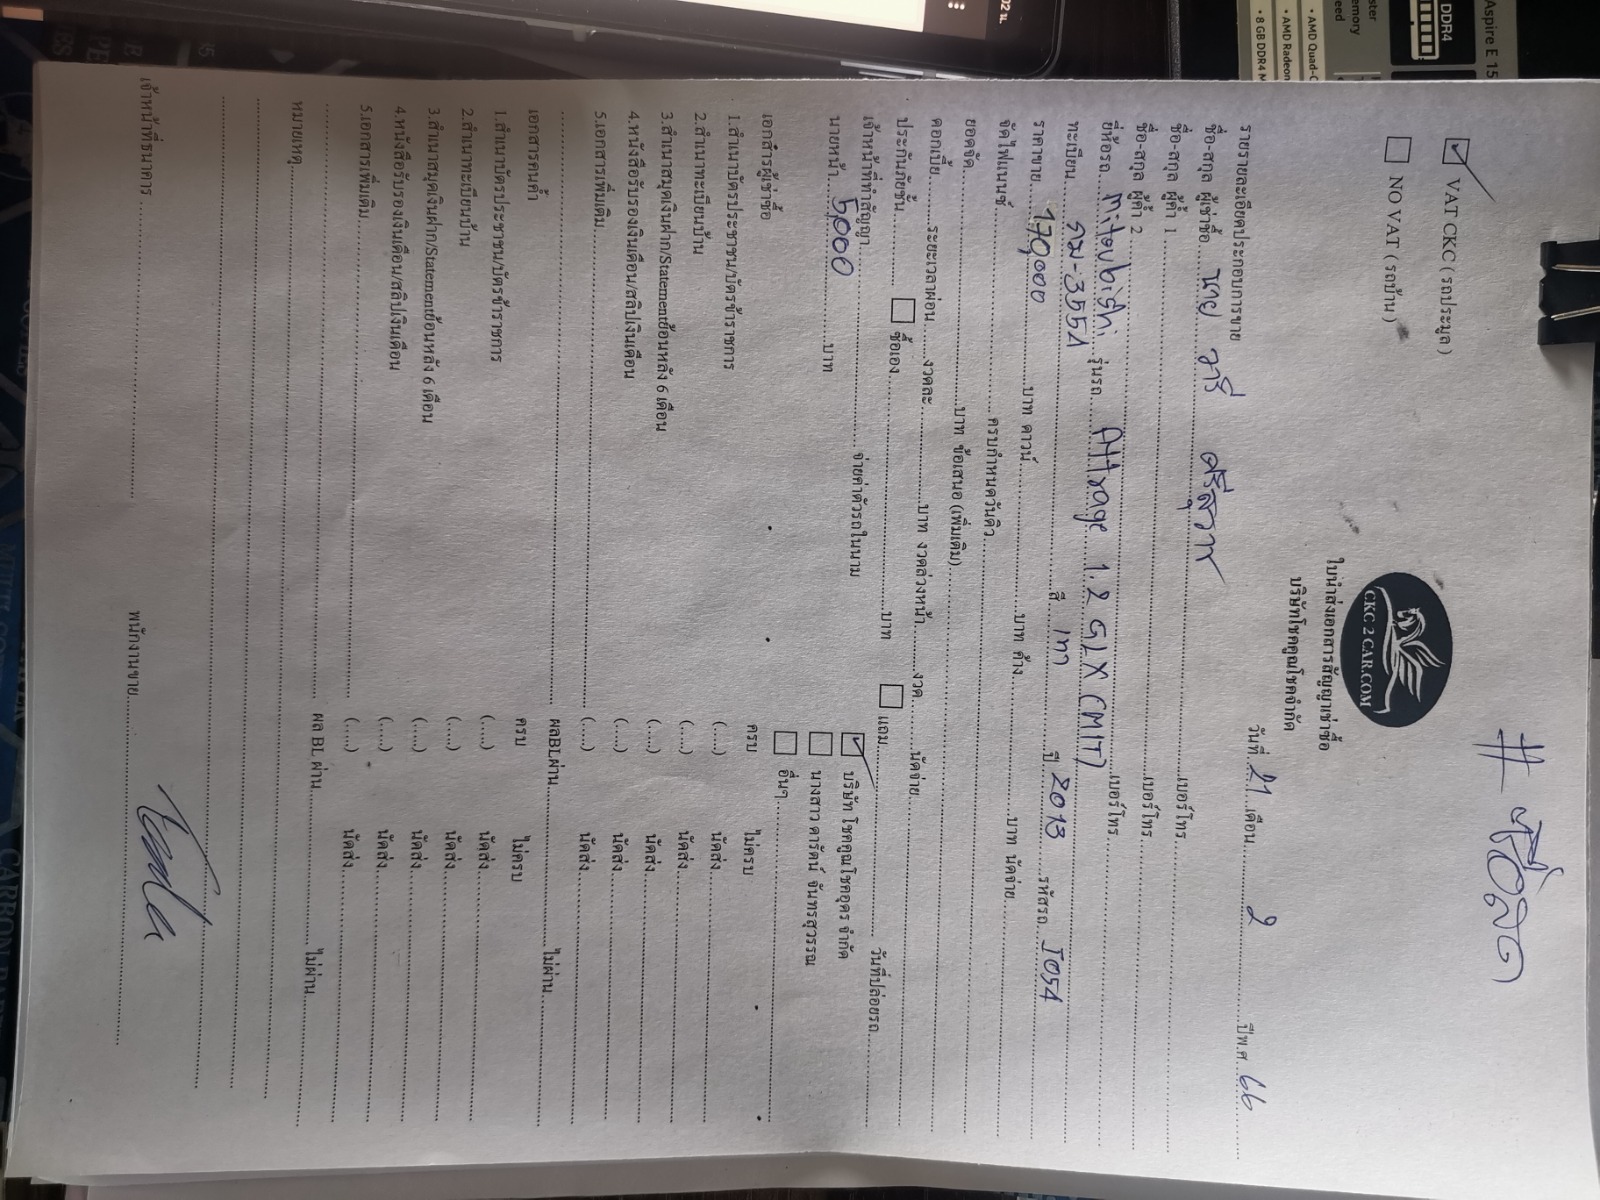 # ซื้อสด
VAT CKC ( รถประมูล )
NO VAT ( รถบ้าน )
CKC 2 CAR.COM
ใบนำส่งเอกสารสัญญาเช่าซื้อ
บริษัทโชคคูณโชคจำกัด
วันที่ 21 เดือน 2 ปีพ.ศ. 66
รายรายละเอียดประกอบการขาย
ชื่อ-สกุล ผู้เช่าซื้อ นาย วารี เบอร์โทร
ชื่อ-สกุล ผู้ค้ำ 1 เบอร์โทร
ชื่อ-สกุล ผู้ค้ำ 2 เบอร์โทร
ยี่ห้อรถ mitsubishi รุ่นรถ Attrage 1.2 GLX (MIT) เบอร์โทร
ทะเบียน -3551 สี เทา ปี 2013 รหัสรถ J051
ราคาขาย 170,000 บาท ดาวน์ บาท ค้าง บาท นัดจ่าย
จัดไฟแนนซ์ ครบกำหนดวันคิว
ยอดจัด บาท ข้อเสนอ (เพิ่มเติม)
ดอกเบี้ย ระยะเวลาผ่อน งวดละ บาท งวดล่วงหน้า งวด นัดจ่าย
ประกันภัยชั้น ซื้อเอง บาท แถม วันที่ปล่อยรถ
เจ้าหน้าที่ทำสัญญา จ่ายค่าตัวรถในนาม บริษัท โชคคูณโชคอุดร จำกัด
นายหน้า 5,000 บาท นางสาว ดารัตน์ จันทรสุวรรณ
อื่นๆ
เอกสารผู้เช่าซื้อ ครบ ไม่ครบ
1.สำเนาบัตรประชาชน/บัตรข้าราชการ (....) นัดส่ง
2.สำเนาทะเบียนบ้าน (....) นัดส่ง
3.สำเนาสมุดเงินฝาก/Statementย้อนหลัง 6 เดือน (....) นัดส่ง
4.หนังสือรับรองเงินเดือน/สลิปเงินเดือน (....) นัดส่ง
5.เอกสารเพิ่มเติม (....) นัดส่ง
ผลBLผ่าน ไม่ผ่าน
เอกสารคนค้ำ ครบ ไม่ครบ
1.สำเนาบัตรประชาชน/บัตรข้าราชการ (....) นัดส่ง
2.สำเนาทะเบียนบ้าน (....) นัดส่ง
3.สำเนาสมุดเงินฝาก/Statementย้อนหลัง 6 เดือน (....) นัดส่ง
4.หนังสือรับรองเงินเดือน/สลิปเงินเดือน (....) นัดส่ง
5.เอกสารเพิ่มเติม (....) นัดส่ง
ผล BL ผ่าน ไม่ผ่าน
หมายเหตุ
เจ้าหน้าที่ธนาคาร พนักงานขาย
Aspire E 15
DDR4
• AMD Quad-C
• AMD Radeon
• 8 GB DDR4 M